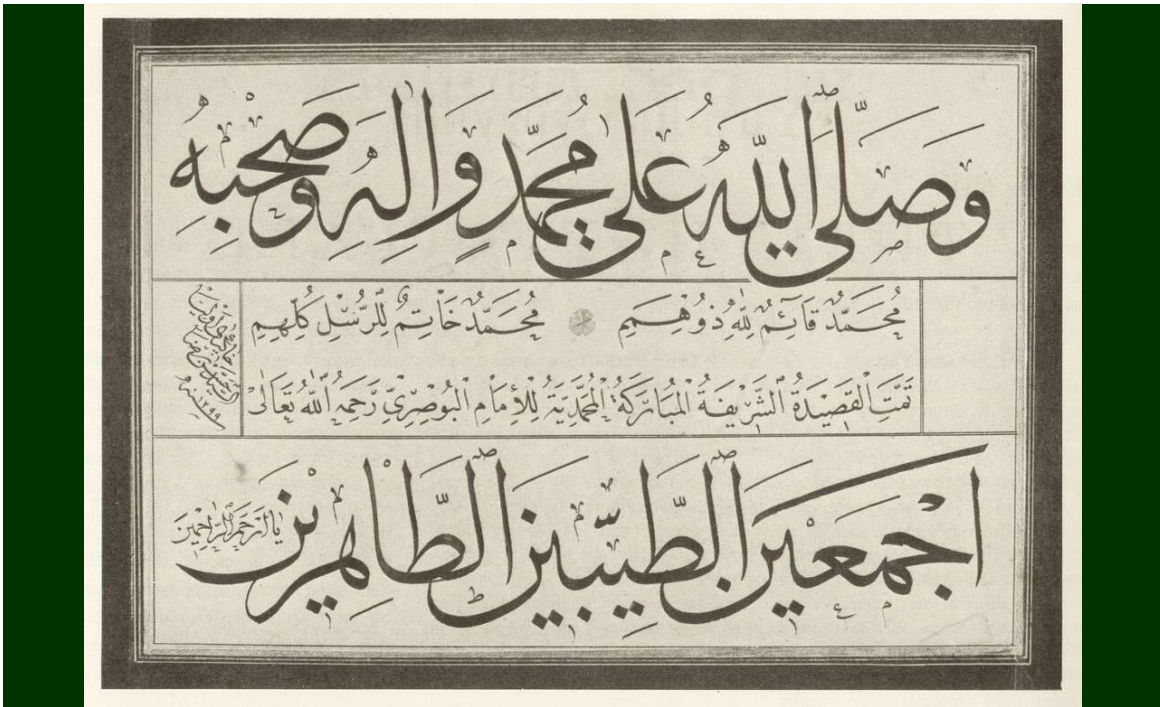 وَصَلَّى اللّٰهُ عَلٰى مُحَمَّدٍ وَاٰلِهِ وَصَحْبِهِ
مُحَمَّدٌ قَائِمٌ لِلّٰهِ ذُو هِمَمِ مُحَمَّدٌ خَاتِمٌ لِلرُّسْلِ كُلِّهِمِ
تَمَّتِ الْقَصِيْدَةُ الشَّرِيْفَةُ الْمُبَارَكَةُ الْمُحَمَّدِيَّةُ لِلْاِمَامِ الْبُوْصِرِيْرِيِّ رَحِمَهُ اللّٰهُ تَعَالٰى
اَجْمَعِيْنَ الطَّيِّبِيْنَ الطَّاهِرِيْنَ
يَا اَرْحَمَ الرَّاحِمِيْنَ
سنه ١٢٩٩